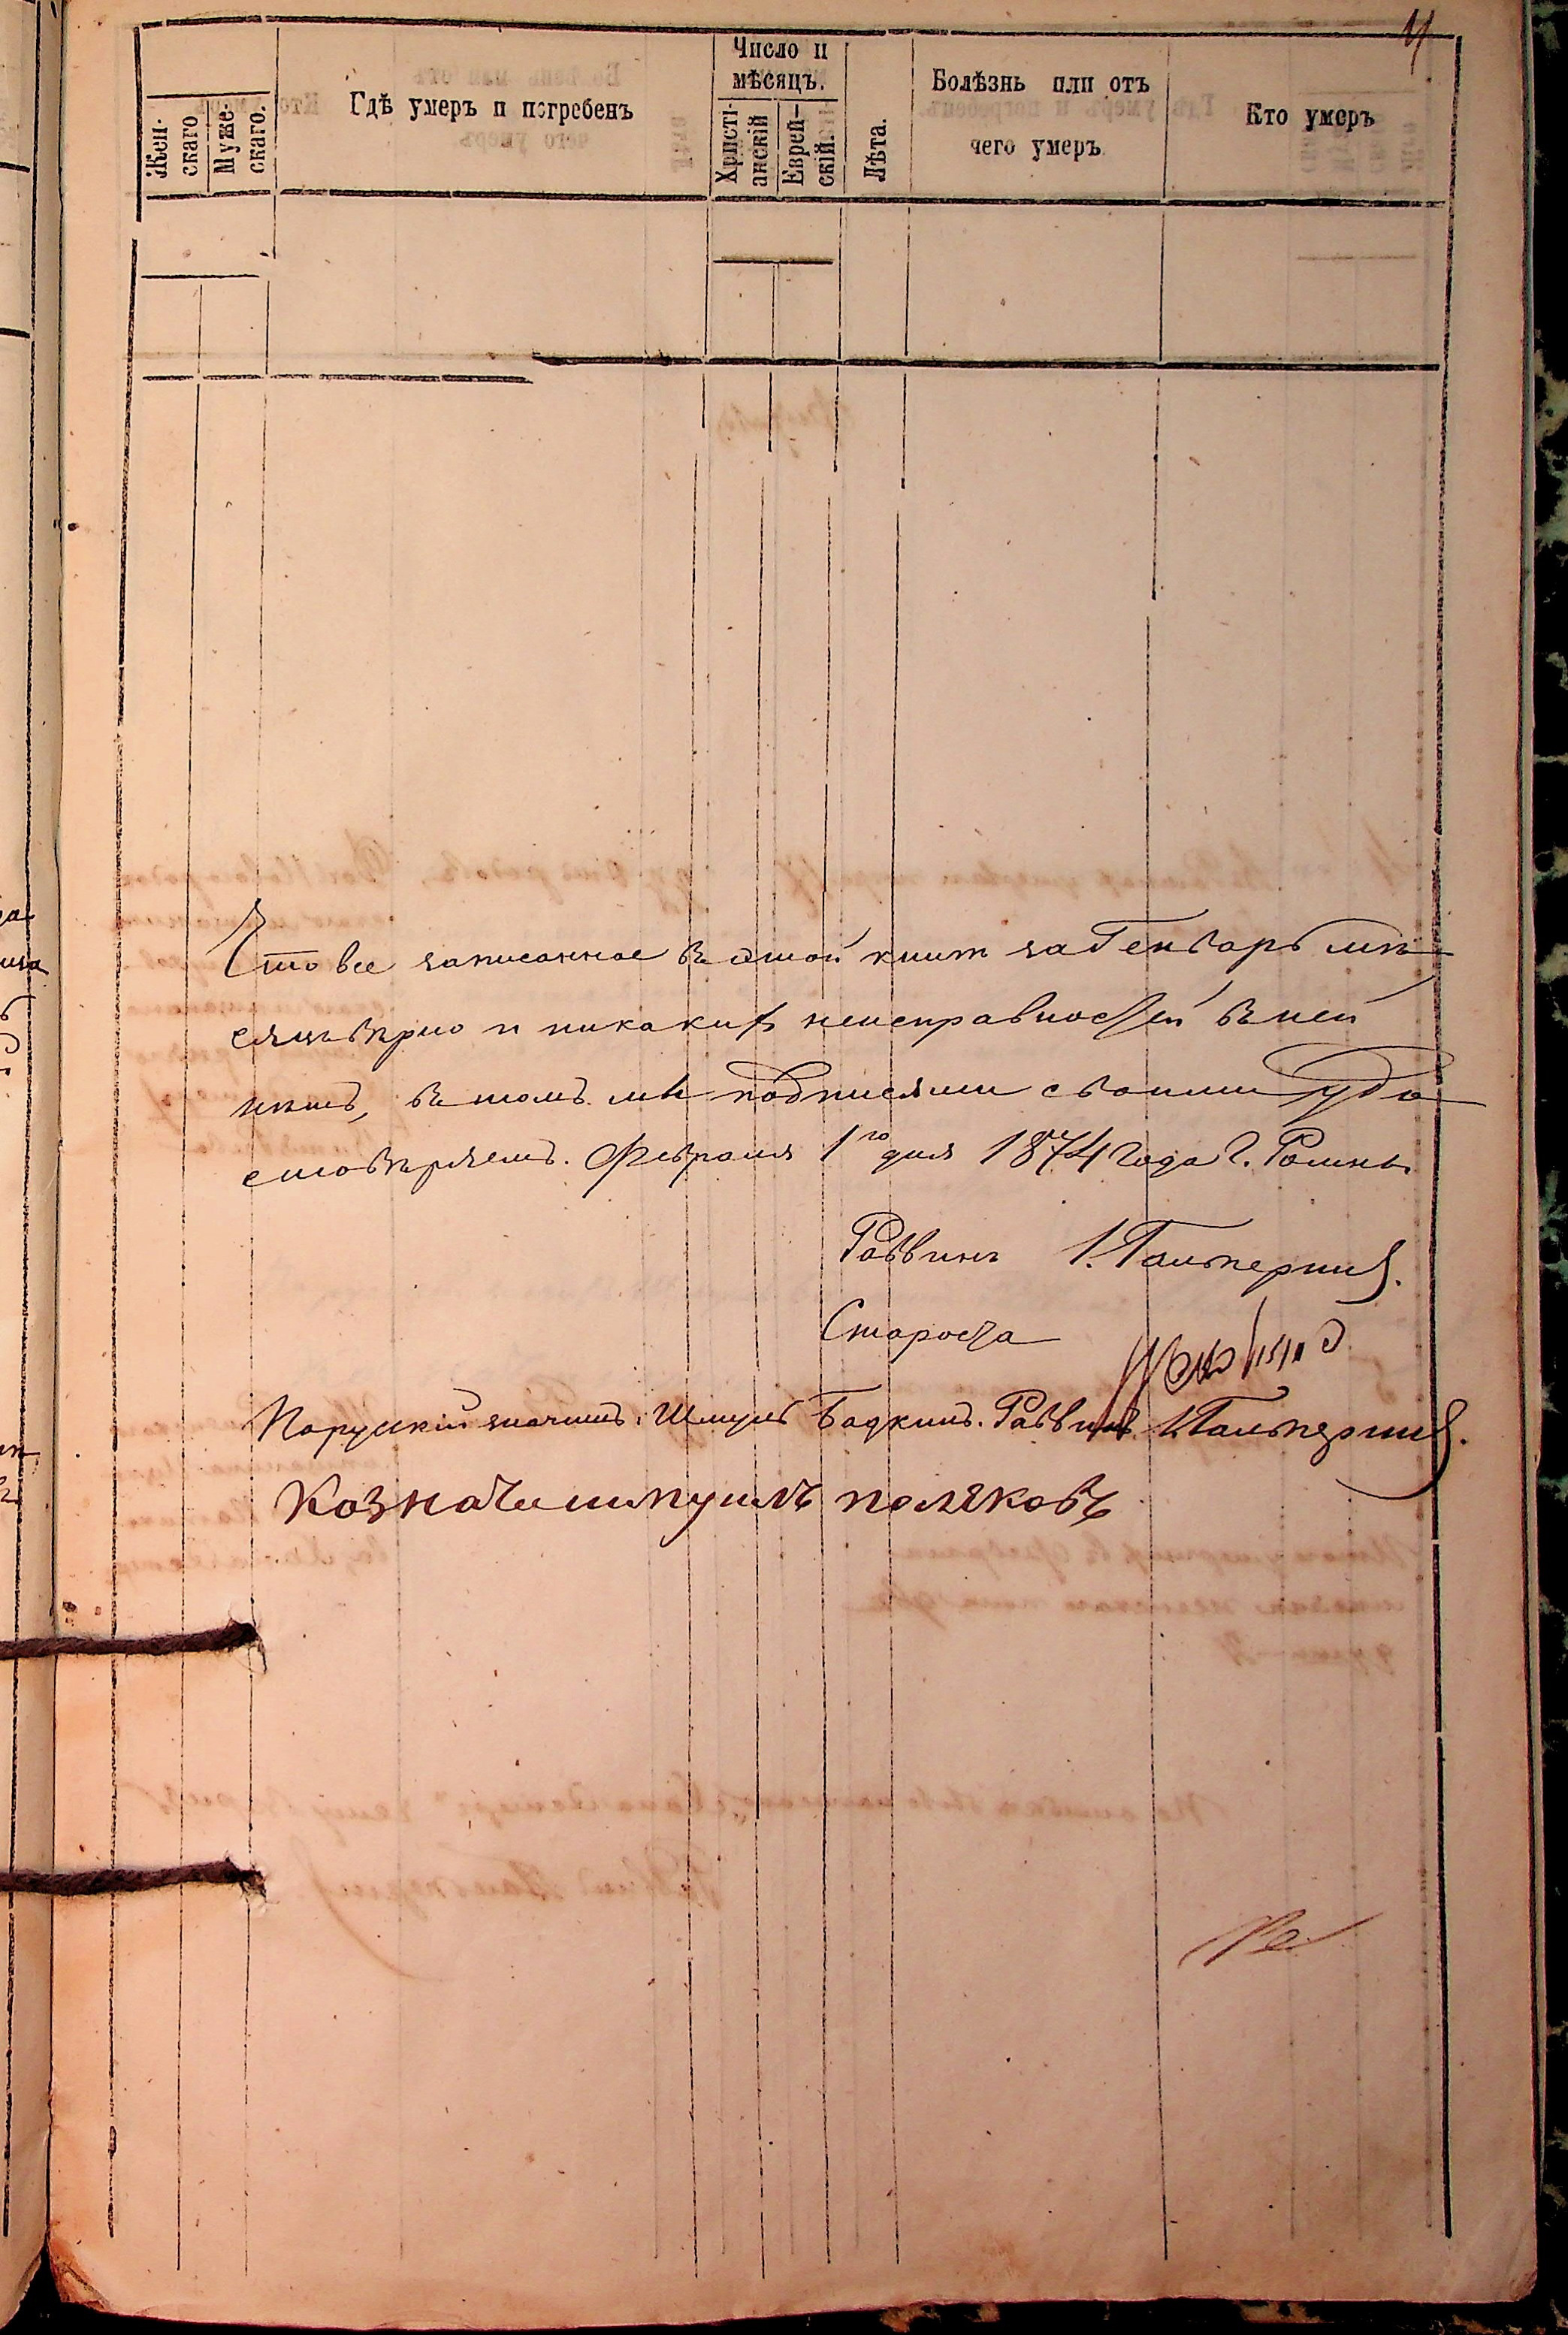 4
Жен-
скаго
Муже-
скаго.
Гдѣ умеръ и погребенъ
Число и
мѣсяцъ.
Христі-
анскій
Еврей-
скій.
Лѣта.
Болѣзнь или отъ
чего умеръ
Кто умеръ
Что все записанное въ этой книгѣ за Генварь мѣ-
сяцъ вѣрно и никакихъ неисправностей въ ней
нѣтъ, въ томъ мы подписями своими удо-
стовѣряемъ. Февраля 1го дня 1874 года г. Ромны.
Раввинъ І. Гальперинъ.
Староста
По русски значитъ: Шмуль Бадкинъ. Раввинъ І. Гальперинъ.
Козначи шмуилъ поляковъ